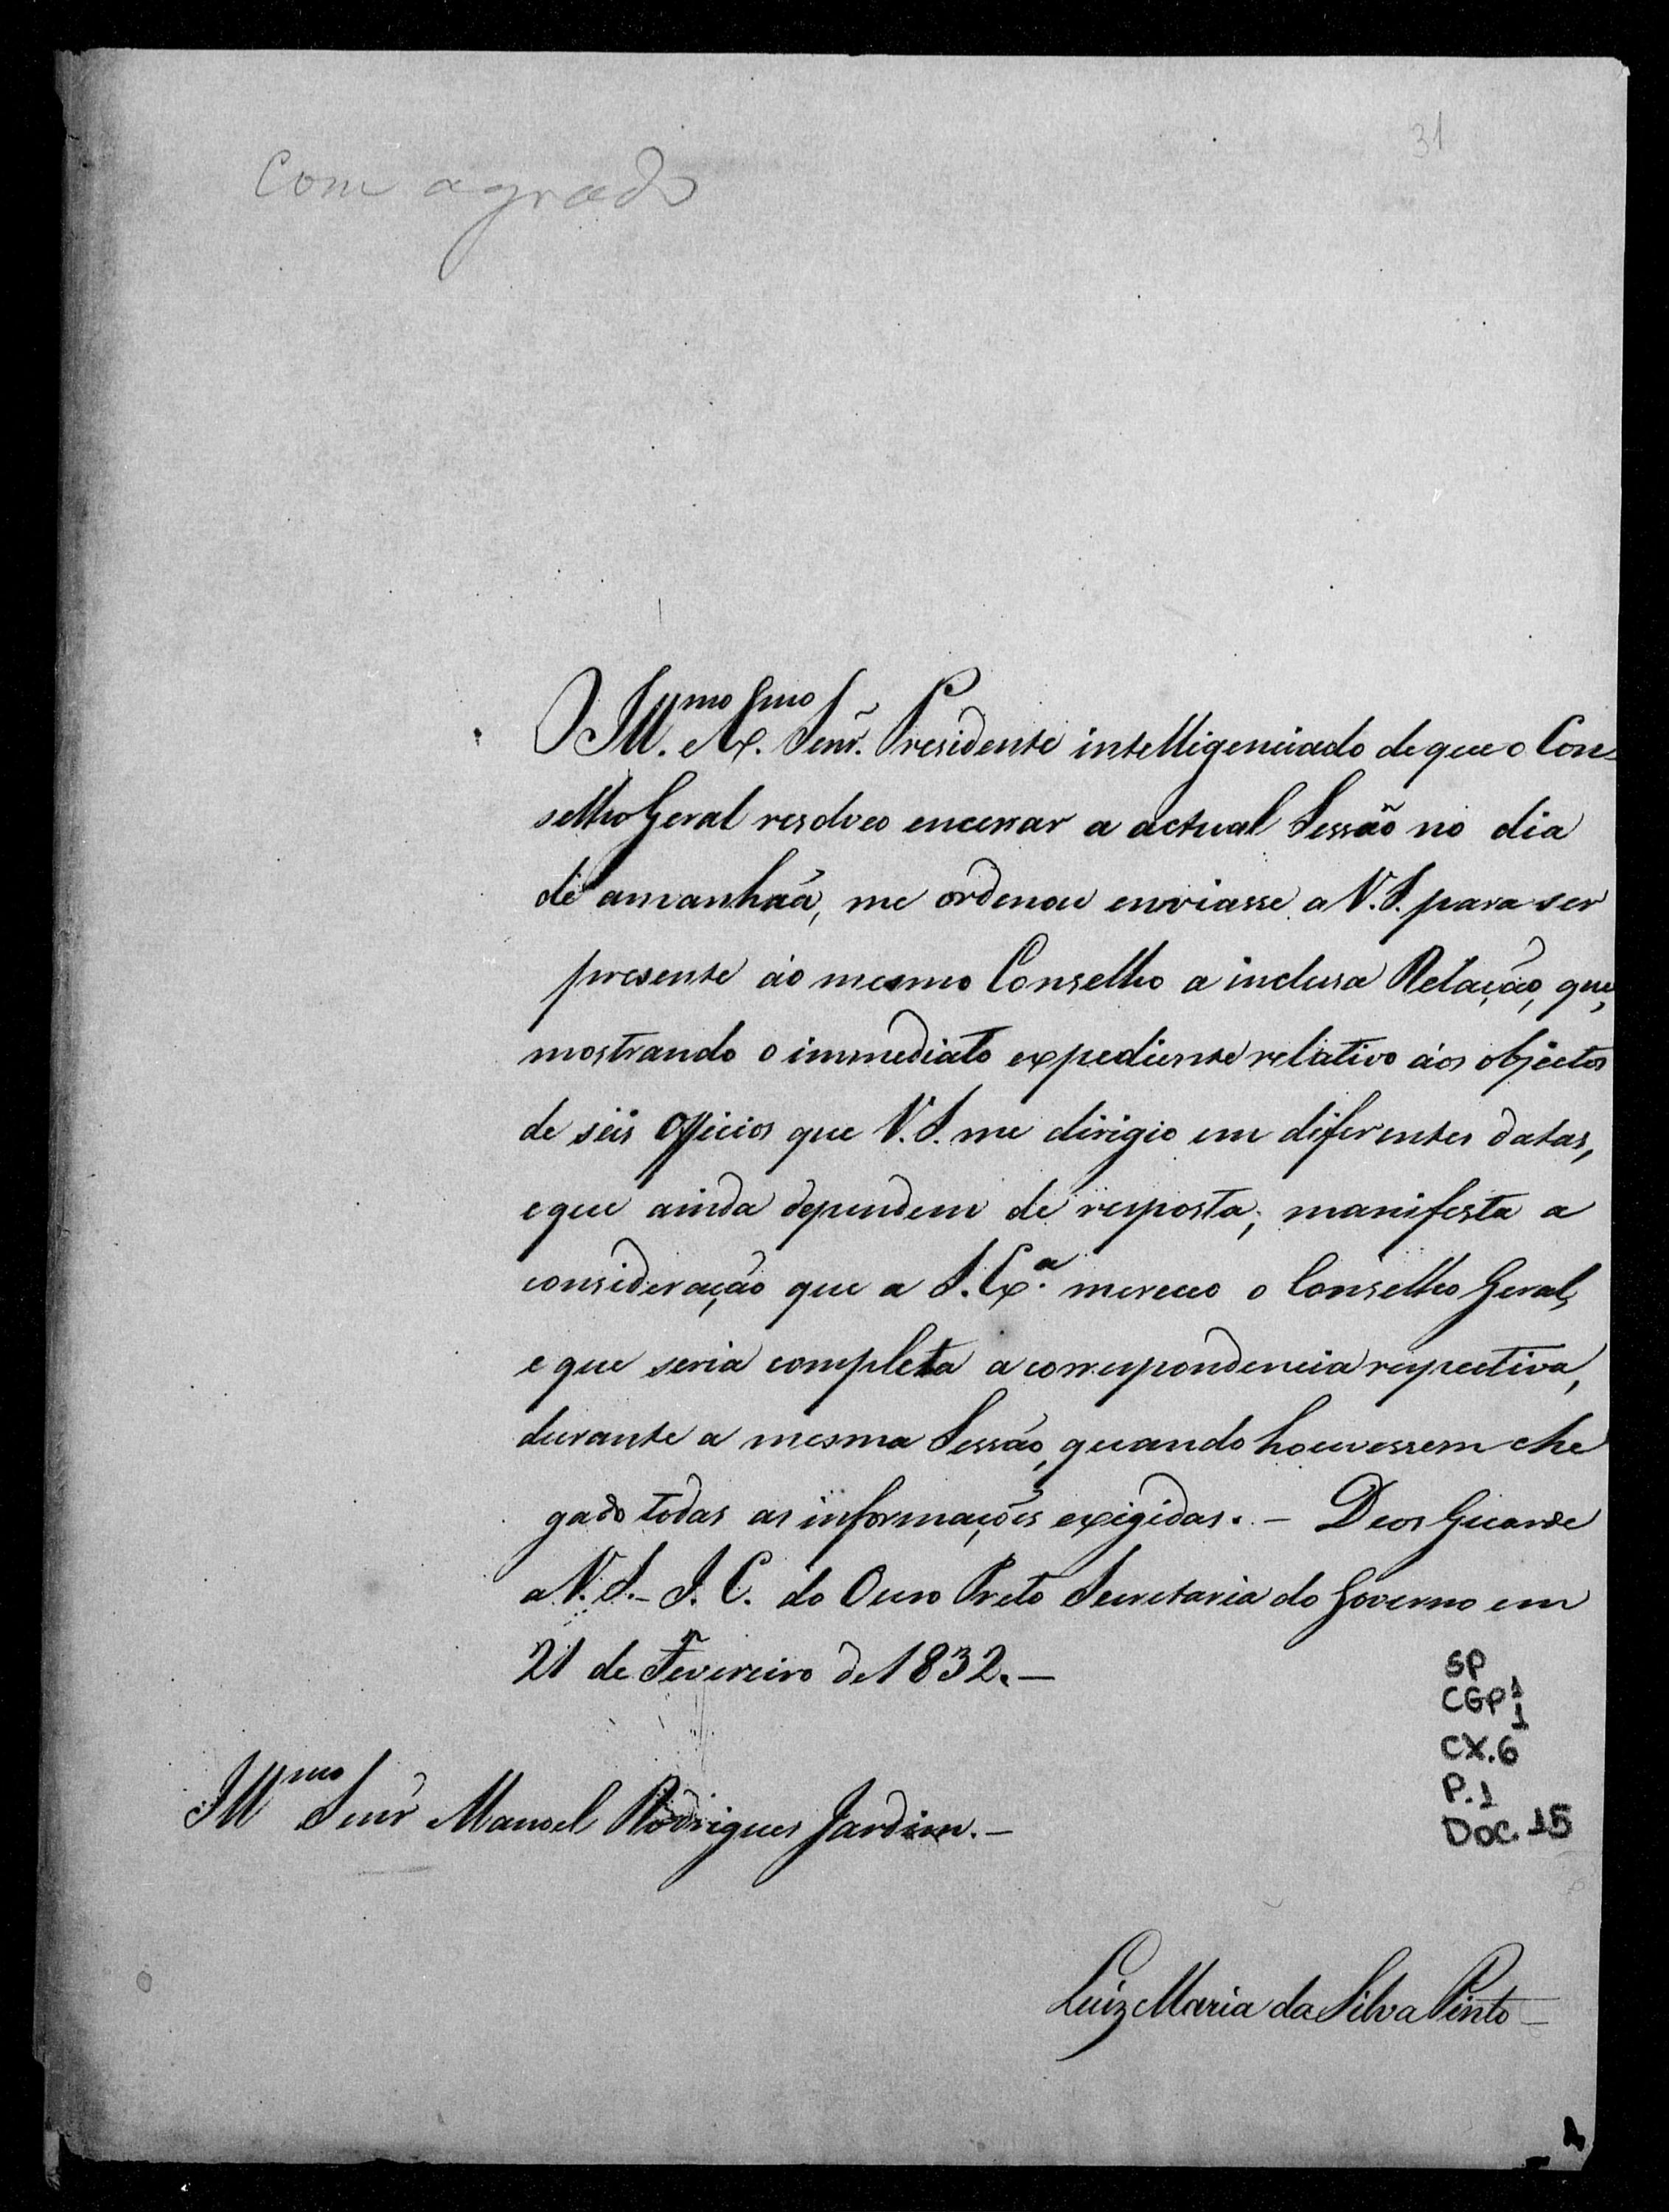 31
Com agrado
O Ill.mo e Ex.mo Senr. Presidente intelligenciado de que o Con-
selho Geral resolveo encerrar a actual Sessão no dia
de amanhãa, me ordenou enviasse a V.S. para ser
presente áo mesmo Conselho a inclusa Relação, que,
mostrando o immediato expediente relativo áos objectos
de seis Officios que V.S. me dirigio em diferentes datas,
e que ainda dependem de resposta; manifesta a
consideração que a S. Ex.a mereceo o Conselho Geral,
e que seria completa a correspondencia respectiva,
durante a mesma Sessão, quando houvessem che
gado todas as informações exigidas. - Deos Guarde
a V.S. - I. C. do Ouro Preto Secretaria do Governo em
21 de Fevereiro de 1832. -
SP
CGP 1
1
CX. 6
P. 1
Doc. 15
Illmo Senr Manoel Rodrigues Jardim. -
Luiz Maria da Silva Pinto -